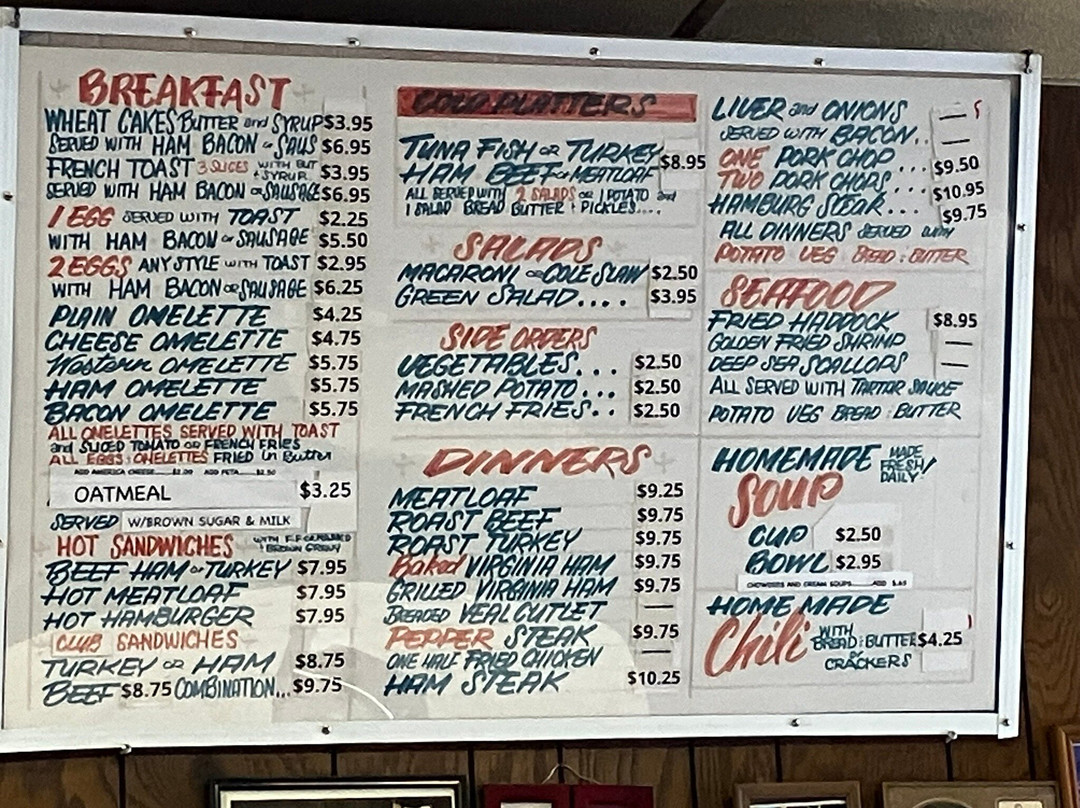 BREAKFAST
WHEAT CAKES BUTTER and SYRUP $3.95
SERVED WITH HAM BACON or SAUS $6.95
FRENCH TOAST 3 SLICES WITH BUT + SYRUP $3.95
SERVED WITH HAM BACON or SAUSAGE $6.95
1 EGG SERVED WITH TOAST $2.25
WITH HAM BACON or SAUSAGE $5.50
2 EGGS ANY STYLE WITH TOAST $2.95
WITH HAM BACON or SAUSAGE $6.25
PLAIN OMELETTE $4.25
CHEESE OMELETTE $4.75
Western OMELETTE $5.75
HAM OMELETTE $5.75
BACON OMELETTE $5.75
ALL OMELETTES SERVED WITH TOAST
and SLICED TOMATO or FRENCH FRIES
ALL EGGS : OMELETTES FRIED in Butter
ADD AMERICA CHEESE $1.00 ADD FETA $2.50
OATMEAL $3.25
SERVED W/BROWN SUGAR & MILK
HOT SANDWICHES WITH F.F.
BROWN GRAVY
BEEF HAM or TURKEY $7.95
HOT MEATLOAF $7.95
HOT HAMBURGER $7.95
CLUB SANDWICHES
TURKEY OR HAM $8.75
BEEF $8.75 COMBINATION... $9.75
COLD PLATTERS
TUNA FISH OR TURKEY $8.95
HAM BEEF or MEATLOAF
ALL SERVED WITH 2 SALADS OR 1 POTATO and
1 SALAD BREAD BUTTER + PICKLES....
SALADS
MACARONI or COLE SLAW $2.50
GREEN SALAD.... $3.95
SIDE ORDERS
VEGETABLES... $2.50
MASHED POTATO... $2.50
FRENCH FRIES.. $2.50
DINNERS
MEATLOAF $9.25
ROAST BEEF $9.75
ROAST TURKEY $9.75
Baked VIRGINIA HAM $9.75
GRILLED VIRGINIA HAM $9.75
BREADED VEAL CUTLET —
PEPPER STEAK $9.75
ONE HALF FRIED CHICKEN —
HAM STEAK $10.25
LIVER and ONIONS —
SERVED WITH BACON.. —
ONE PORK CHOP ... $9.50
TWO PORK CHOPS ... $10.95
HAMBURG STEAK... $9.75
ALL DINNERS SERVED WITH
POTATO VEG BREAD : BUTTER
SEAFOOD
FRIED HADDOCK $8.95
GOLDEN FRIED SHRIMP —
DEEP SEA SCALLOPS —
ALL SERVED WITH TARTAR SAUCE
POTATO VEG BREAD : BUTTER
HOMEMADE MADE FRESH! DAILY
SOUP
CUP $2.50
BOWL $2.95
CHOWDERS AND CREAM SOUPS ADD
HOME MADE
Chili WITH BREAD : BUTTER $4.25
or CRACKERS